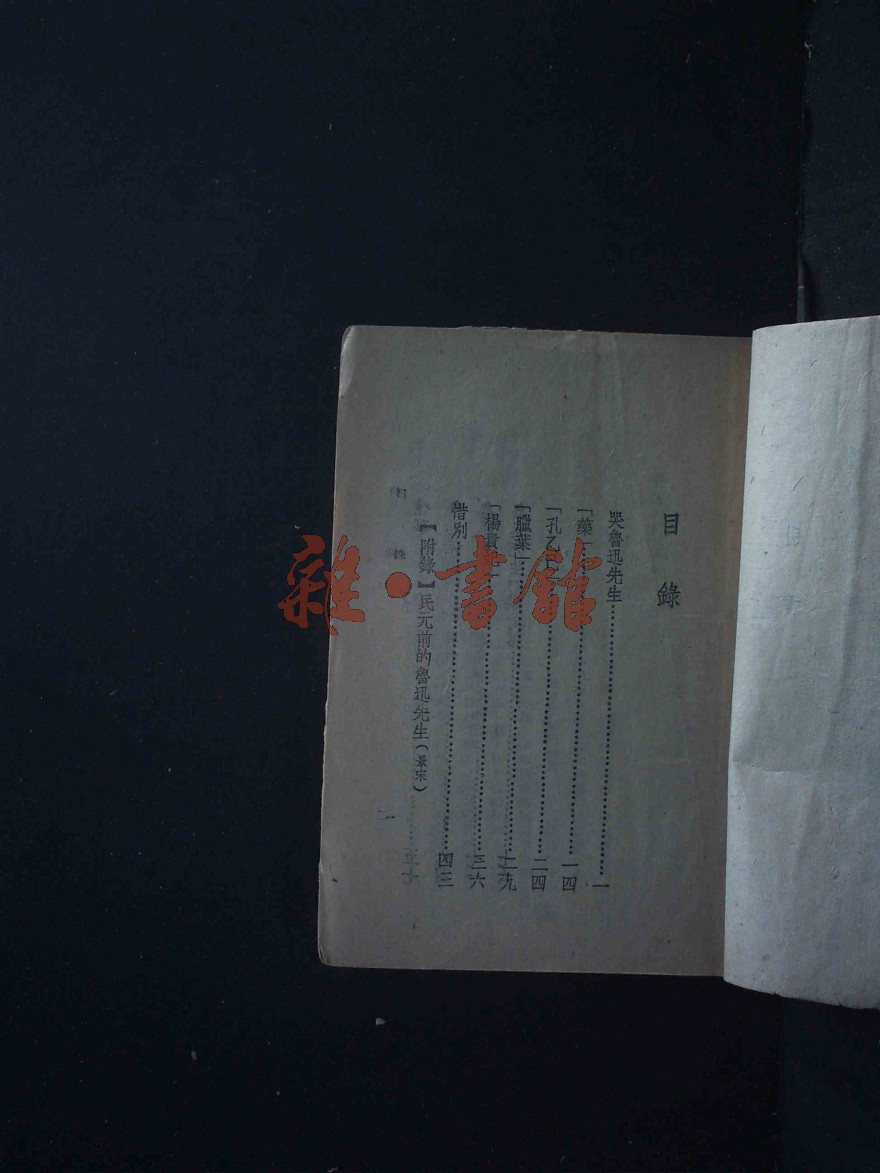 目錄
哭魯迅先生……一
「藥」……一四
「孔乙己」……二四
「臘葉」……二九
「楊貴妃」……三六
惜別……四三
【附錄】民元前的魯迅先生(景宋)……
目錄
一
雜·書館